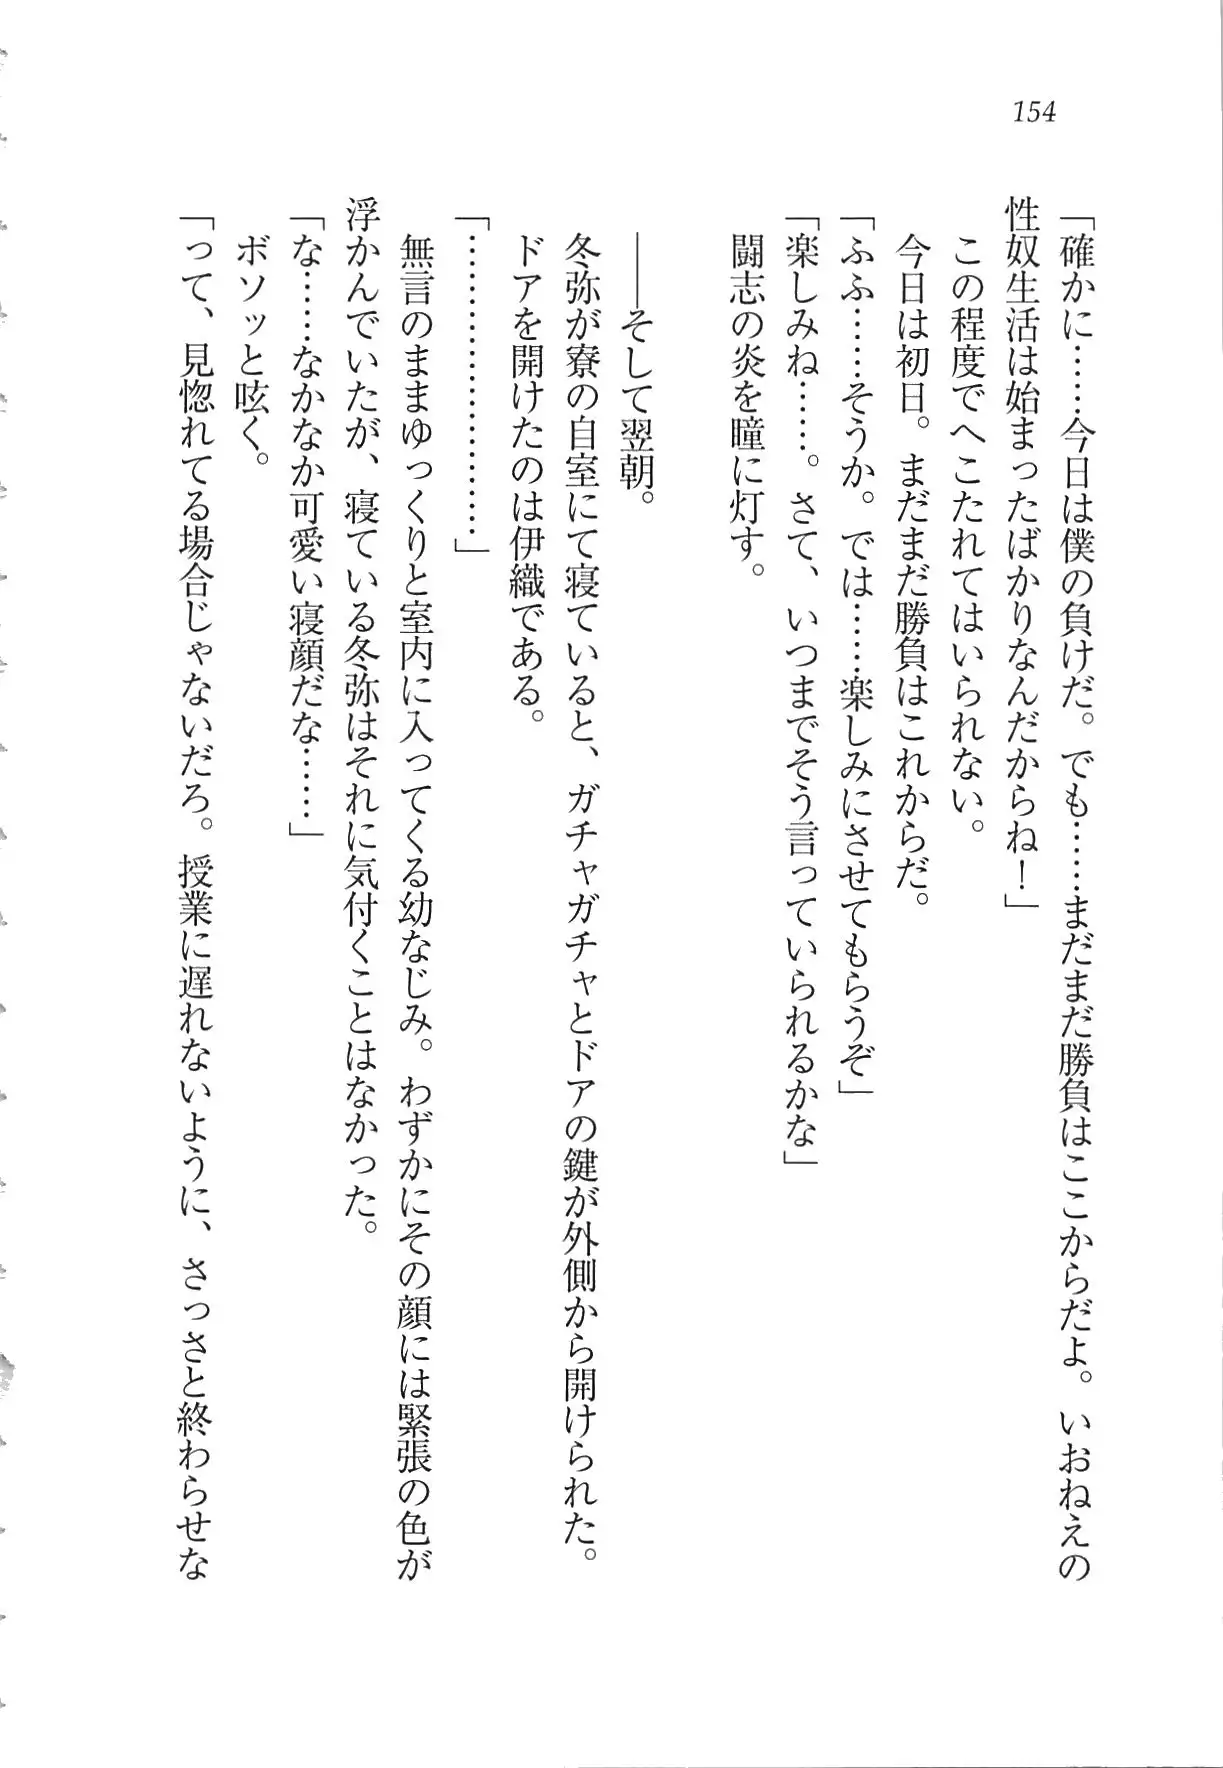 154
「確かに……今日は僕の負けだ。でも……まだまだ勝負はここからだよ。いおねえの
性奴生活は始まったばかりなんだからね！」
この程度でへこたれてはいられない。
今日は初日。まだまだ勝負はこれからだ。
「ふふ……そうか。では……楽しみにさせてもらうぞ」
「楽しみね……。さて、いつまでそう言っていられるかな」
闘志の炎を瞳に灯す。
――そして翌朝。
冬弥が寮の自室にて寝ていると、ガチャガチャとドアの鍵が外側から開けられた。
ドアを開けたのは伊織である。
「……………………」
無言のままゆっくりと室内に入ってくる幼なじみ。わずかにその顔には緊張の色が
浮かんでいたが、寝ている冬弥はそれに気付くことはなかった。
「な……なかなか可愛い寝顔だな……」
ボソッと呟く。
「って、見惚れてる場合じゃないだろ。授業に遅れないように、さっさと終わらせな